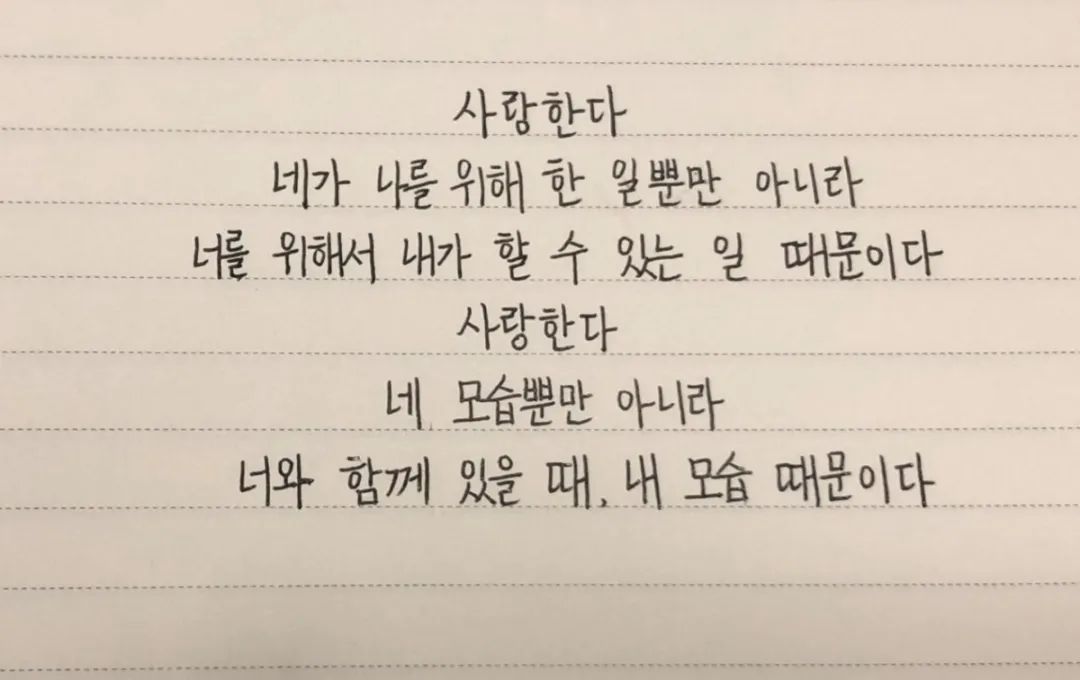 사랑한다
네가 나를 위해 한 일뿐만 아니라
너를 위해서 내가 할 수 있는 일 때문이다
사랑한다
네 모습뿐만 아니라
너와 함께 있을 때, 내 모습 때문이다